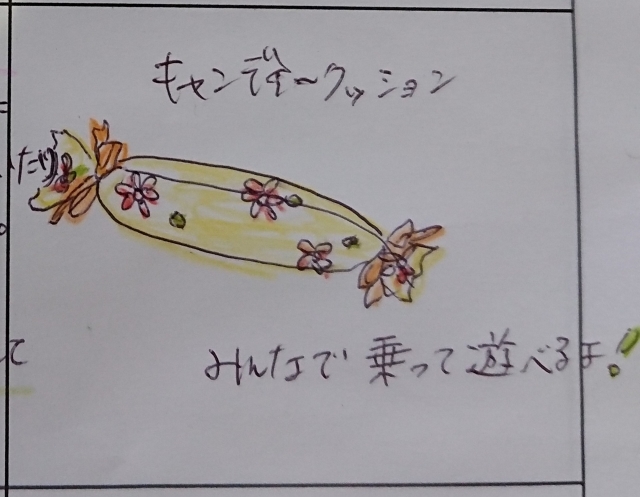 キャンディークッション
たり
みんなで乗って遊べるよ!
て